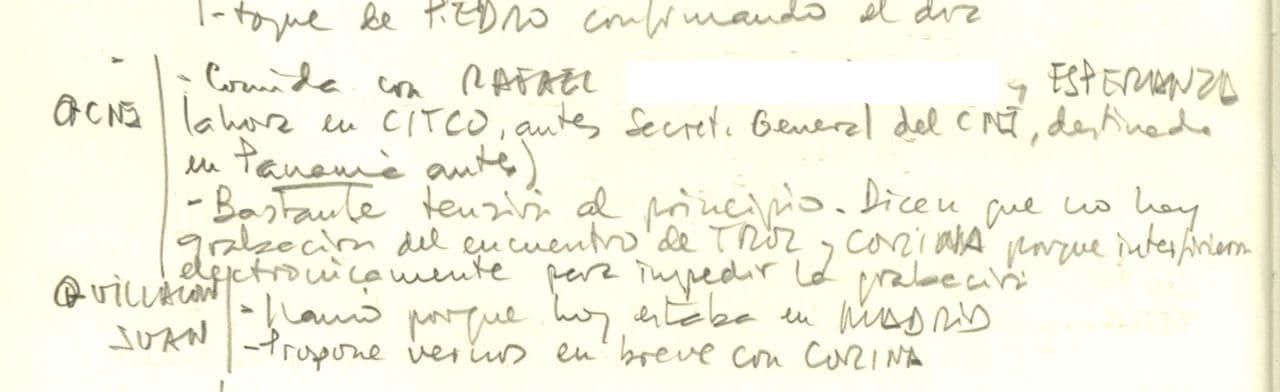 1-toque de PIEDRO confirmando el dvz
- Comida con RAFAEL y ESPERANZA
@CNI (ahora en CITCO, antes Secret. General del CNI, destinada
en Panamá antes)
- Bastante tensión al principio. Dicen que no hay
grabación del encuentro de TROZ y CORINNA porque interfirieron
electrónicamente para impedir la grabación
@VILLALON
- Llamó porque hoy estaba en MADRID
JUAN - Propone vernos en breve con CORINA